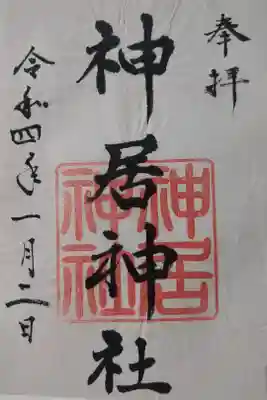 奉拝
神居神社
令和四年一月二日
神居
神社